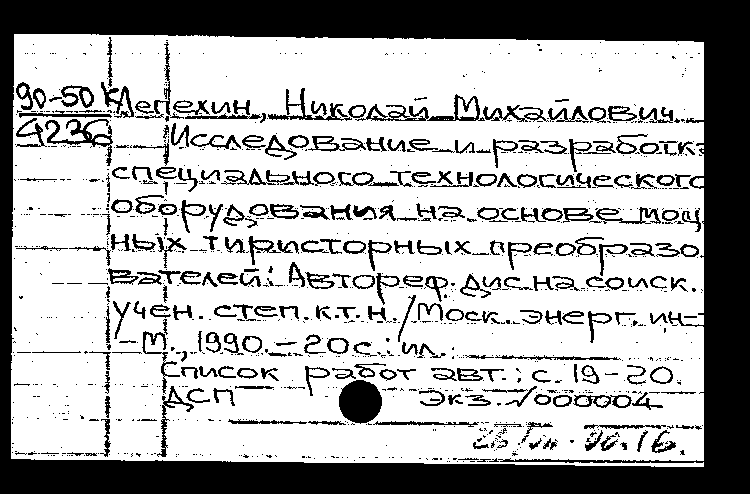 90-50К Лепехин, Николай Михайлович.
4236 Исследование и разработка
специального технологического
оборудования на основе мощ
ных тиристорных преобразо
вателей: Автореф. дис. на соиск.
учен. степ. к.т.н. / Моск. энерг. ин-т
– М., 1990. – 20с.: ил.
Список работ авт.: с. 19-20.
ДСП Экз. №000004